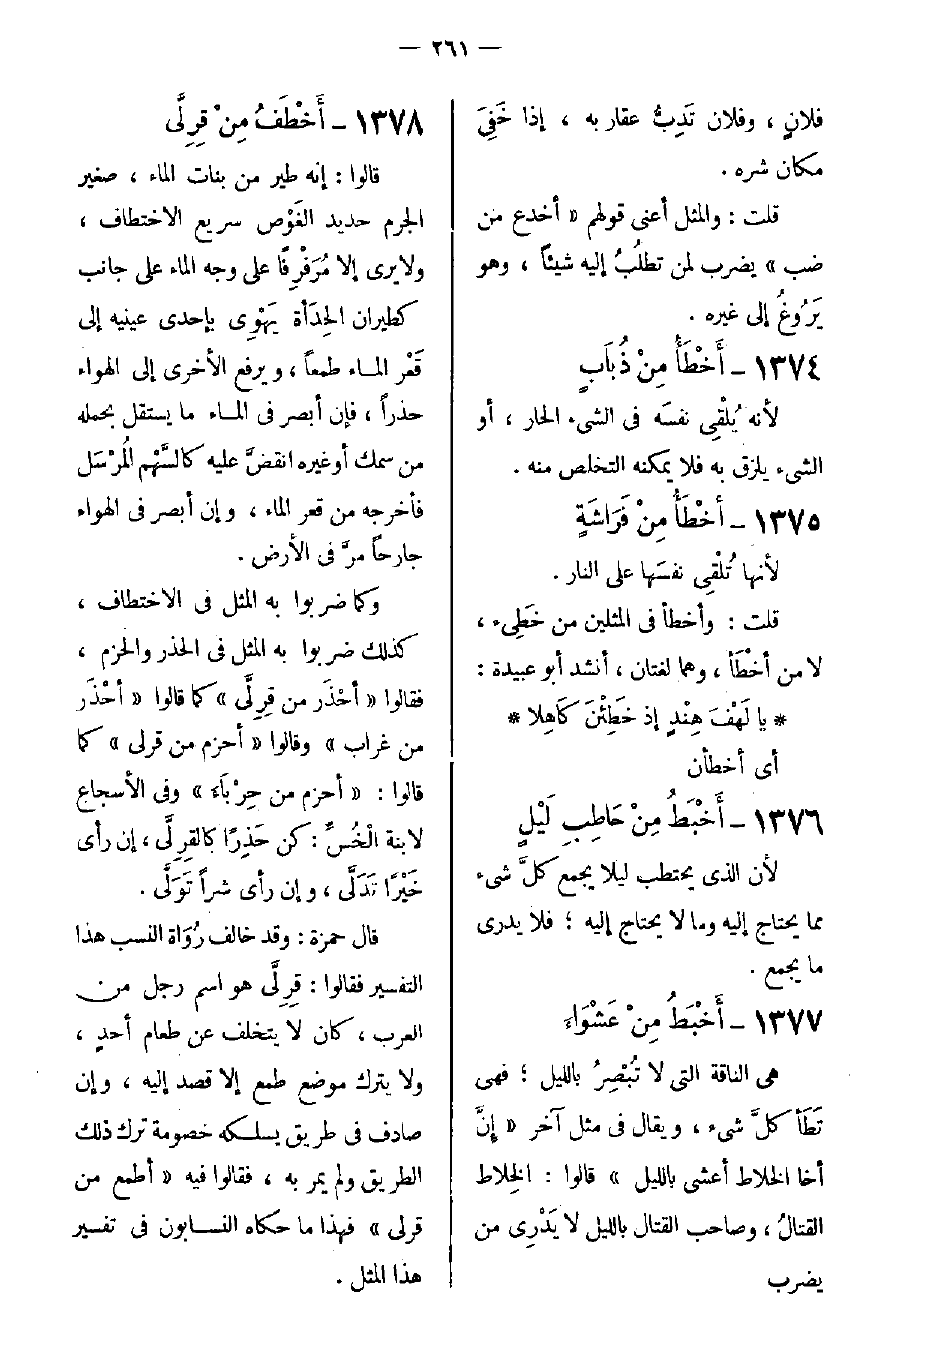 — ٢٦١ —
فلانٍ ، وفلان تَدِبُّ عقاربه ، إذا خَفِىَ
مكان شره .
قلت : والمثل أعنى قولهم « أخدع من
ضب » يضرب لمن تطلُبُ إليه شيئاً ، وهو
يَرُوغُ إلى غيره .
١٣٧٤ – أَخْطَأُ مِنْ ذُبَابٍ
لأنه يُلْقِى نفسَه فى الشىء الحار ، أو
الشىء يلزق به فلا يمكنه التخلص منه .
١٣٧٥ – أَخْطَأُ مِنْ فَرَاشَةٍ
لأنها تُلْقِى نفسَها على النار .
قلت : وأخطأ فى المثلين من خَطِىء ،
لا من أخْطَأ ، وهما لغتان ، أنشد أبو عبيدة :
* يا لَهْفَ هِنْدٍ إذ خَطِئْنَ كَاهِلا *
أى أخطأن
١٣٧٦ – أَخْبَطُ مِنْ حَاطِبِ لَيْلٍ
لأن الذى يحتطب ليلا يجمع كلَّ شىء
مما يحتاج إليه وما لا يحتاج إليه ؛ فلا يدرى
ما يجمع .
١٣٧٧ – أَخْبَطُ مِنْ عَشْوَاءَ
هى الناقة التى لا تُبْصِرُ بالليل ؛ فهى
تَطَأ كلَّ شىء ، ويقال فى مثل آخر « إنَّ
أخا الخلاط أعشى بالليل » قالوا : الخِلاط
القتالُ ، وصاحب القتال بالليل لا يَدْرِى من
يضرب
١٣٧٨ – أَخْطَفُ مِنْ قِرِلَّى
قالوا : إنه طير من بنات الماء ، صغير
الجرم حديد الغَوْص سريع الاختطاف ،
ولا يرى إلا مُرَفْرِفًا على وجه الماء على جانب
كطيران الحِدَأة يَهْوِى بإحدى عينيه إلى
قَعْر المـاء طمعاً ، ويرفع الأخرى إلى الهواء
حذراً ، فإن أبصر فى المـاء ما يستقل بحمله
من سمك أو غيره انقضَّ عليه كالسَّهْم المُرْسَل
فأخرجه من قعر الماء ، وإن أبصر فى الهواء
جارحاً مرَّ فى الأرض .
وكما ضربوا به المثل فى الاختطاف ،
كذلك ضربوا به المثل فى الحذر والحزم ،
فقالوا « أحْذَر من قِرِلَّى » كما قالوا « أحْذَر
من غراب » وقالوا « أحزم من قرلى » كما
قالوا : « أحزم من حِرْبَاء » وفى الأسجاع
لابنة الْخُسِّ : كن حَذِرًا كالقِرِلَّى ، إن رأى
خَيْرًا تَدَلَّى ، وإن رأى شراً تَوَلَّى .
قال حمزة : وقد خالف رُوَاة النسب هذا
التفسير فقالوا : قِرِلَّى هو اسم رجل من
العرب ، كان لا يتخلف عن طعام أحدٍ ،
ولا يترك موضع طمع إلا قصد إليه ، وإن
صادف فى طريق يسلكه خصومة ترك ذلك
الطريق ولم يمر به ، فقالوا فيه « أطمع من
قرلى » فهذا ما حكاه النسابون فى تفسير
هذا المثل .